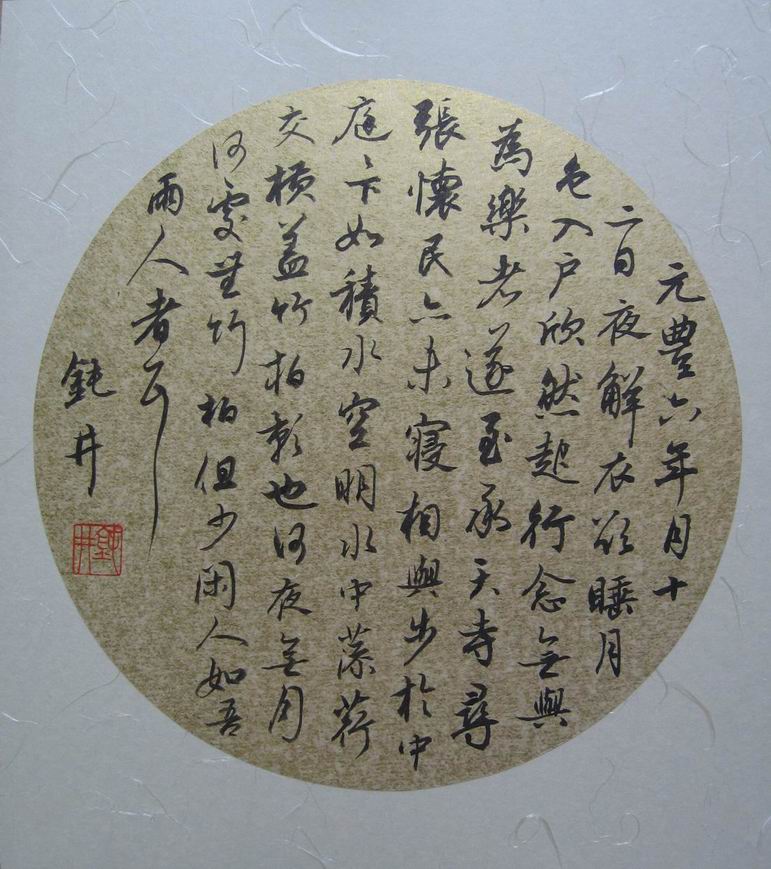 元豐六年月十
二日夜解衣欲睡月
色入户欣然起行念無與
為樂者遂至承天寺尋
張懷民亦未寢相與步於中
庭下如積水空明水中藻荇
交橫蓋竹柏影也何夜無月
何處無竹柏但少閑人如吾
兩人者耳
鈍井
鈍井